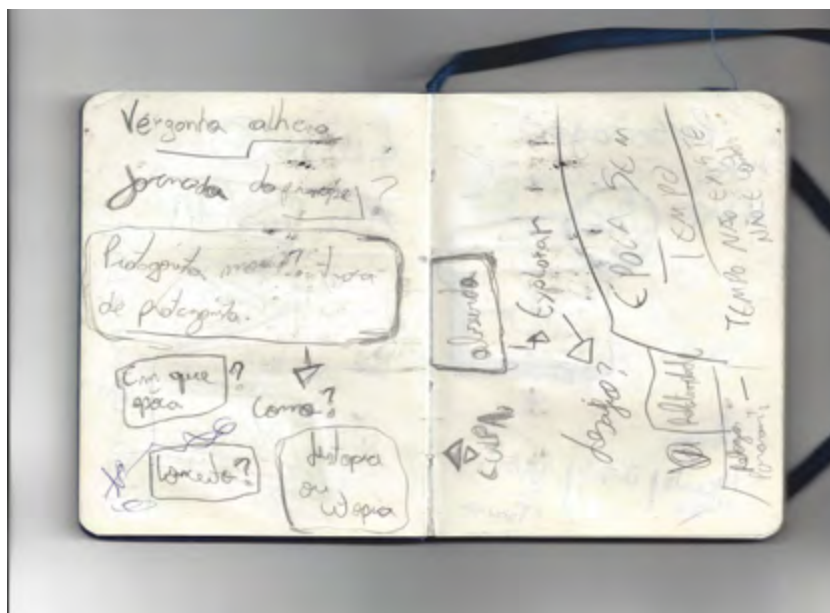 Vergonha alheia
Jornada do príncipe?
Protagonista
de protagonista.
Em que
época?
Como?
Conceito?
distopia
ou
utopia
absurda
Explorar
desejo?
CULPA
ÉPOCA SEM
TEMPO
TEMPO NÃO EXISTE
NÃO É